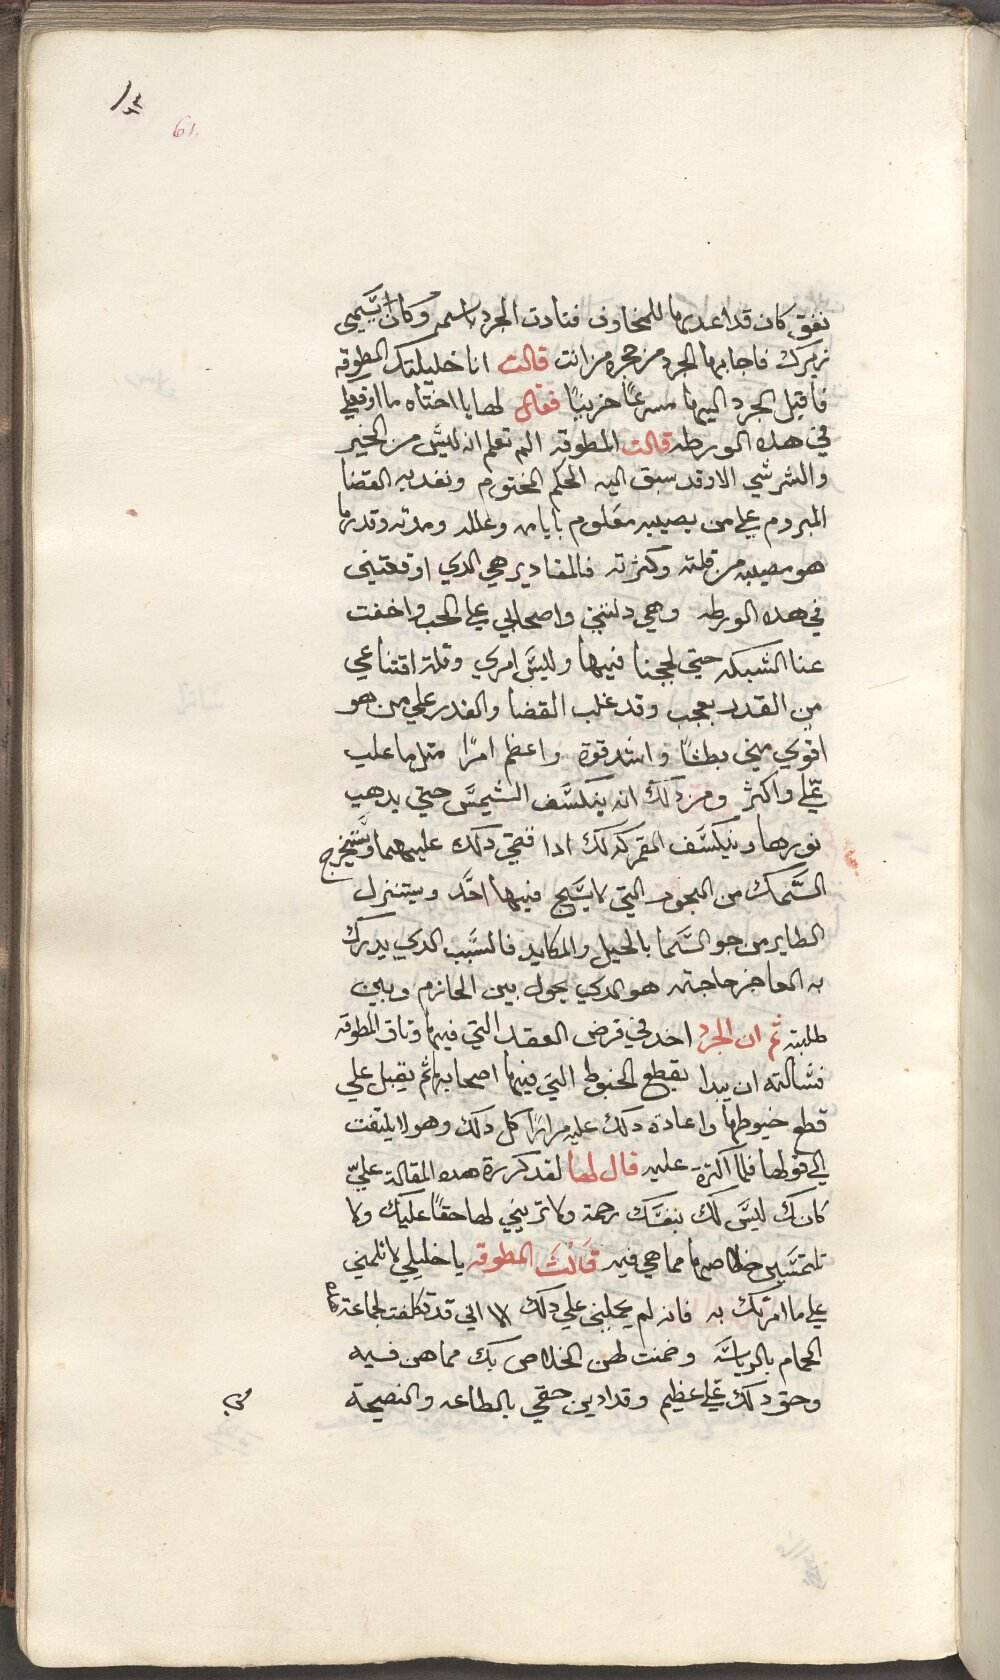 ٦٣
61.
نفق كان قد اعدها للمخاوف فنادت الجرد باسمه وكان يسمي
زيرك فاجابها الجرد من جحره من انت قالت انا خليلتك المطوقه
فاقبل الجرد اليها مسرعًا حزينًا فقال لها يا اختاه ما اوقعك
في هذه الورطه قالت المطوقه الم تعلم انه ليس من الخير
والشر شي الا وقد سبق اليه الحكم المختوم ونفد به القضا
المبروم علي من يصيبه معلوم بايامه وعلله ومدته وقدرما
هو مصيبه من قلته وكثرته فالمقادير هي الدي اوقعتني
في هده الورطه وهي دلتني واصحابي علي الحب واخفت
عنا الشبكه حتي لججنا فيها وليس امري وقلة اقتناعي
من القدر بعجب وقد غلب القضا والقدر علي من هو
اقوي مني بطشًا واشد قوة واعظم امرًا متل ما غلب
علي واكثر ومن دلك انه ينكسف الشمس حتي يدهب
نورها وينكسف القمر كدلك ادا قضي دلك عليهما ويستخرج
السمك من البحور التي لا يسبح فيها احد ويستنزل
الطاير من جو السما بالحيل والمكايد فالسبب الدي يدرك
به العاجز حاجته هو الدي يحول بين الحازم وبين
طلبته ثم ان الجرد اخد في قرض العقد التي فيها وتاق المطوقه
فسالته ان يبدا بقطع الخيوط التي فيها اصحابها ثم يقبل علي
قطع خيوطها واعادة دلك عليه مرارًا كل دلك وهو لا يلتفت
الي قولها فلما اكثرة عليه قال لها لقد كررة هده المقالة علي
كانك ليس لك بنفسك رحمة ولا تريني لها حقًا عليك ولا
تلتمسين خلاصها مما هي فيه قالت المطوقه يا خليلي لا تلمني
علي ما امرتك به فانه لم يحملني علي دلك الا اني قد تكلفت لجماعة
الحمام بالرياسة وضمنت لهن الخلاص بك مما هن فيه
وحق دلك علي عظيم وقد ادين حقي بالطاعه والنصيحة
في